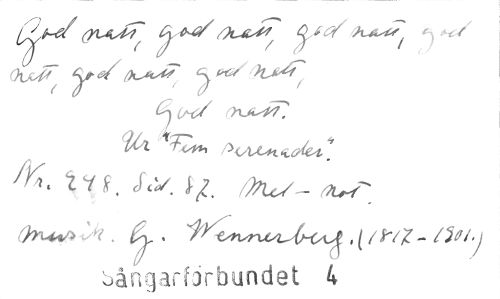 God natt, god natt, god natt, god
natt, god natt, god natt,
God natt.
Ur "Fem serenader".
Nr. 248. Sid. 87. Mel-not.
musik. G. Wennerberg. (1817-1901.)
Sångarförbundet 4